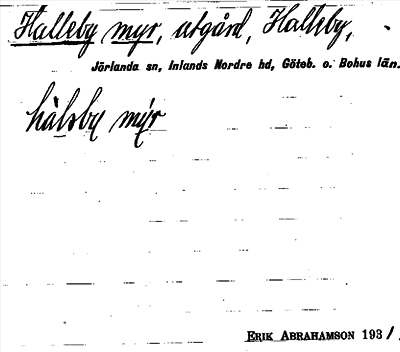 Halleby myr, utgård, Halleby,
Jörlanda sn, Inlands Nordre hd, Göteb. o. Bohus län.
hàlsby mýr
ERIK ABRAHAMSON 193/.